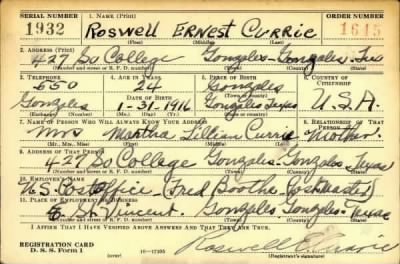 SERIAL NUMBER 1. NAME (Print) ORDER NUMBER
1932 ROSWELL ERNEST CURRIE 1645
(First) (Middle) (Last)
2. ADDRESS (Print)
427 So College Gonzales Gonzales Tex
(Number and street or R. F. D. number) (Town) (County) (State)
3. TELEPHONE 4. AGE IN YEARS 5. PLACE OF BIRTH 6. COUNTRY OF CITIZENSHIP
650 24 Gonzales
DATE OF BIRTH (Town or county)
Gonzales 1-31-1916 Gonzales Texas U.S.A.
(Exchange) (Number) (Mo.) (Day) (Yr.) (State or country)
7. NAME OF PERSON WHO WILL ALWAYS KNOW YOUR ADDRESS 8. RELATIONSHIP OF THAT PERSON
Mrs Martha Lillian Currie Mother
(Mr., Mrs., Miss) (First) (Middle) (Last)
9. ADDRESS OF THAT PERSON
427 So College Gonzales Gonzales Texas
(Number and street or R. F. D. number) (Town) (County) (State)
10. EMPLOYER'S NAME
U.S. Postoffice (Fred Boothe Postmaster)
11. PLACE OF EMPLOYMENT OR BUSINESS
St. Vincent. Gonzales Gonzales Texas
(Number and street or R. F. D. number) (Town) (County) (State)
I AFFIRM THAT I HAVE VERIFIED ABOVE ANSWERS AND THAT THEY ARE TRUE.
REGISTRATION CARD
D. S. S. Form 1 16—17105 Roswell E. Currie
(Registrant's signature)